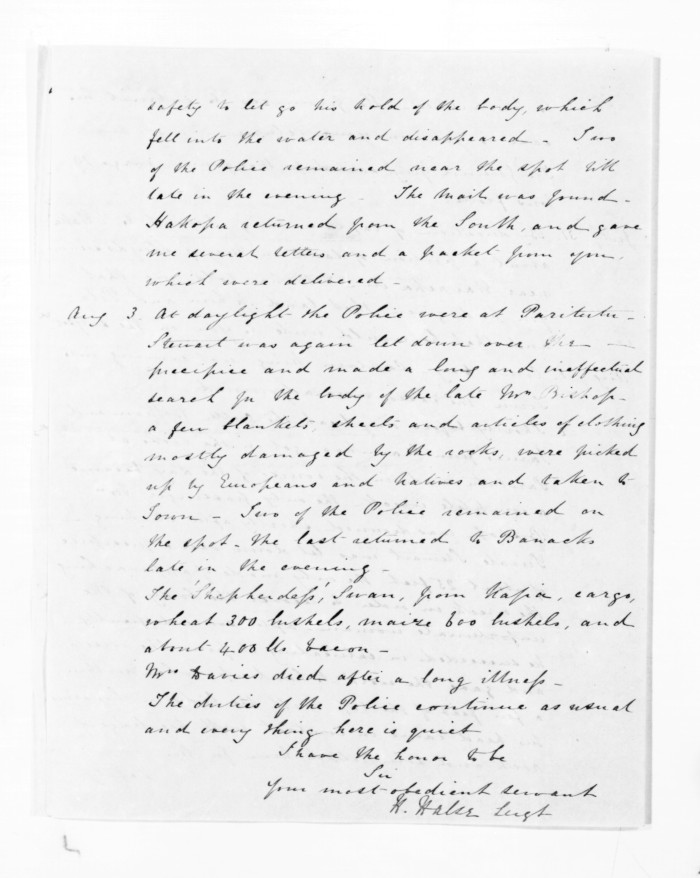 safety to let go his hold of the body, which
fell into the water and disappeared - Two
of the Police remained near the spot till
late in the evening - The Mail was found -
Hakopa returned from the South, and gave
me several letters and a packet from you,
which were delivered -
Aug 3. At daylight the Police were at Paritutu -
Stewart was again let down over the -
precipice and made a long and ineffectual
search for the body of the late Mrs Bishop -
a few blankets, sheets and articles of clothing
mostly damaged by the rocks, were picked
up by Europeans and Natives and taken to
Town - Two of the Police remained on
the spot - the last returned to Barracks
late in the evening -
The 'Shepherdess', Swan, from Kafia, cargo,
wheat 300 bushels, maize 600 bushels, and
about 400 lbs bacon -
Mrs Davies died after a long illness -
The duties of the Police continue as usual
and every thing here is quiet
I have the honor to be
Sir
Your most obedient servant
H. Halse Sergt